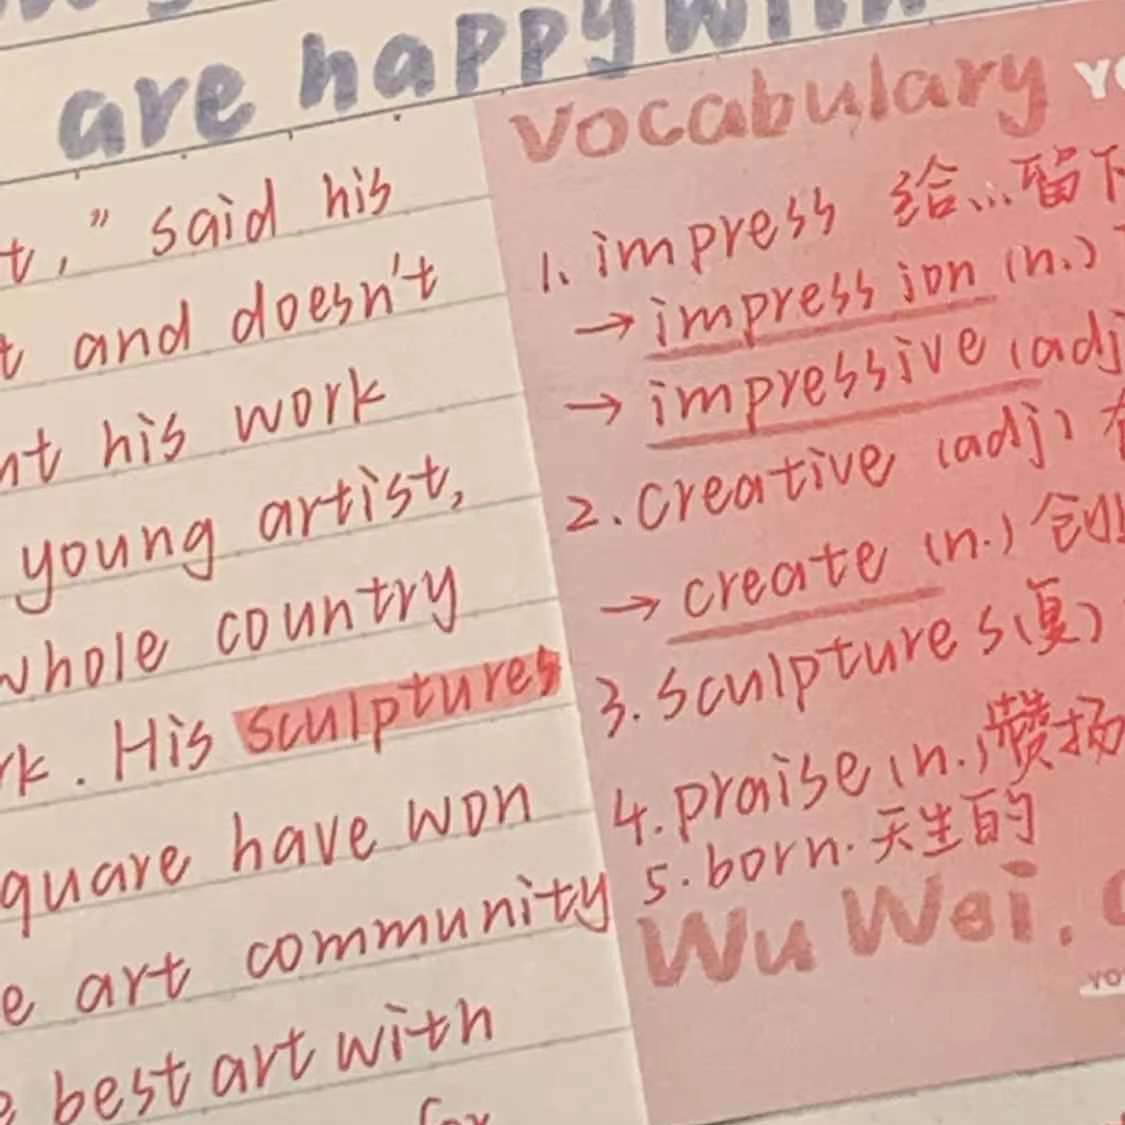 are happy with
" said his
and doesn't
his work
young artist,
whole country
. His sculptures
have won
art community
best art with
for
Vocabulary
1. impress 给...留下
→ impression (n.)
→ impressive (adj
2. creative (adj)
→ create (n.) 创
3. sculptures(复)
4. praise (n.) 赞扬
5. born. 天生的
Wu Wei.